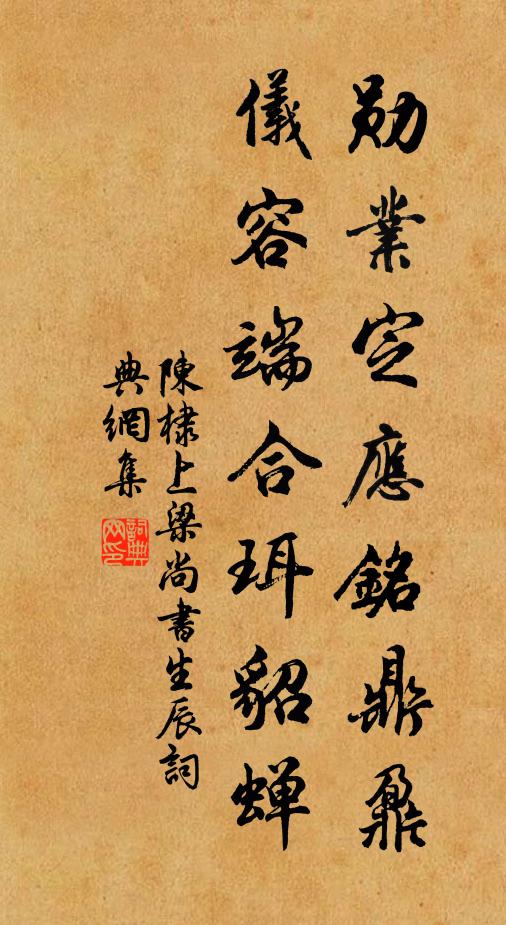 勛業定應銘鼎鼐
儀容端合珥貂蟬
陳棣上梁尚書生辰詞
典網集
詞典網印